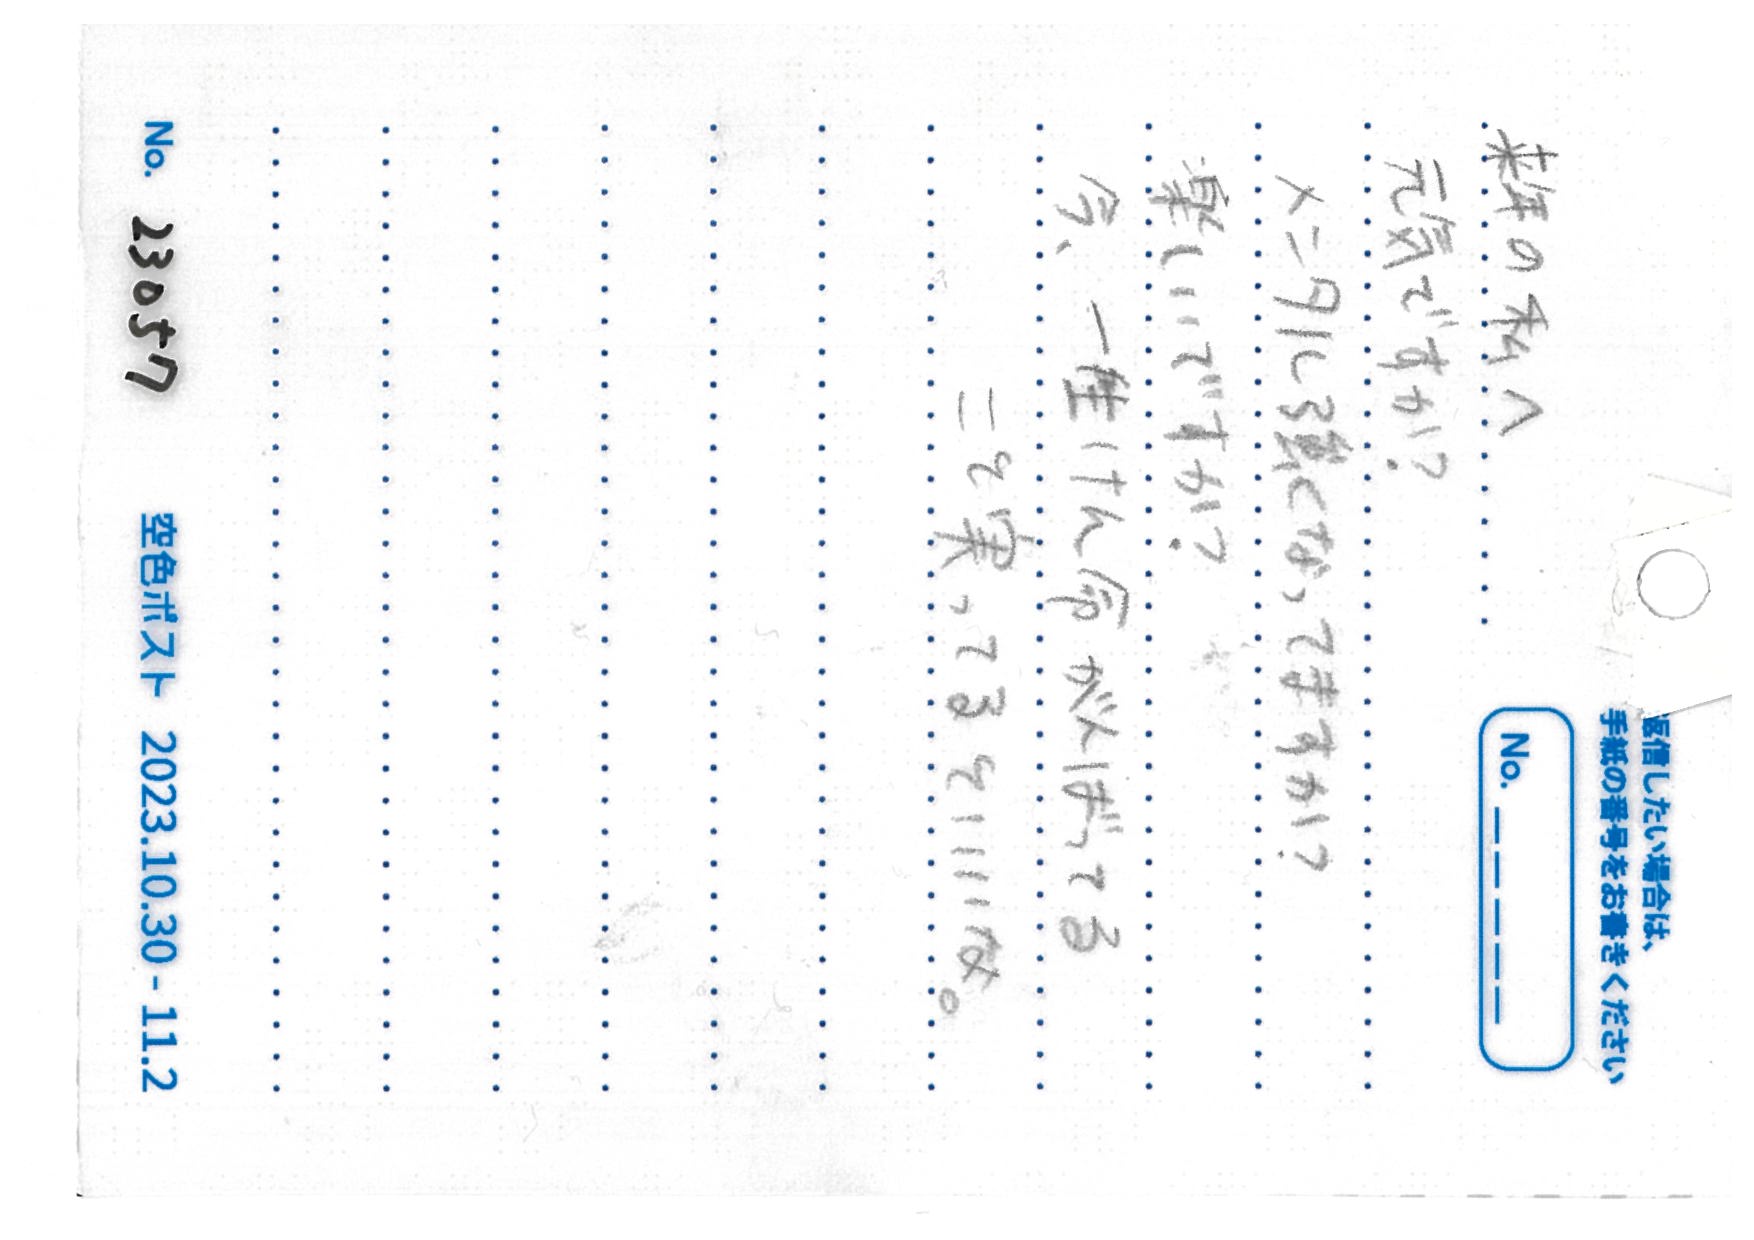 返信したい場合は、
手紙の番号をお書きください
No. _ _ _ _ _
来年の私へ
元気ですか?
メンタル強くなってますか?
楽しいですか?
今、一生けん命がんばってる
こと実ってるといいな。
No. 23057 空色ポスト 2023.10.30 - 11.2